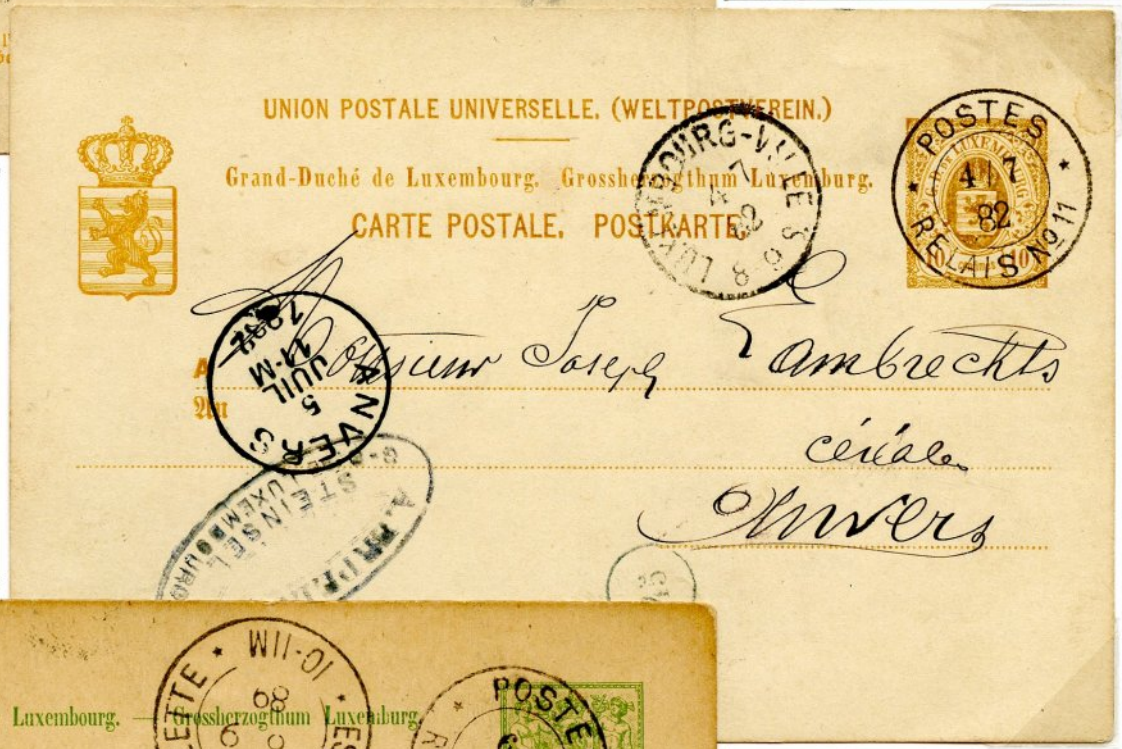 UNION POSTALE UNIVERSELLE. (WELTPOSTVEREIN.)
Grand-Duché de Luxembourg. Grossherzogthum Luxemburg.
CARTE POSTALE. POSTKARTE.
LUXEMBOURG-VILLE
4 7 82
6-8 S
POSTES
4 7
82
RELAIS No 11
G. D. DE LUXEMBOURG
10 10
A Monsieur Joseph Lambrechts
An
céréales
Anvers
ANVERS
5
JUIL
11-M
1882
STEINSEL
LUXEMBOURG
Luxembourg. — Grossherzogthum Luxemburg
ETTE * 10-11M * ES
89
POSTE